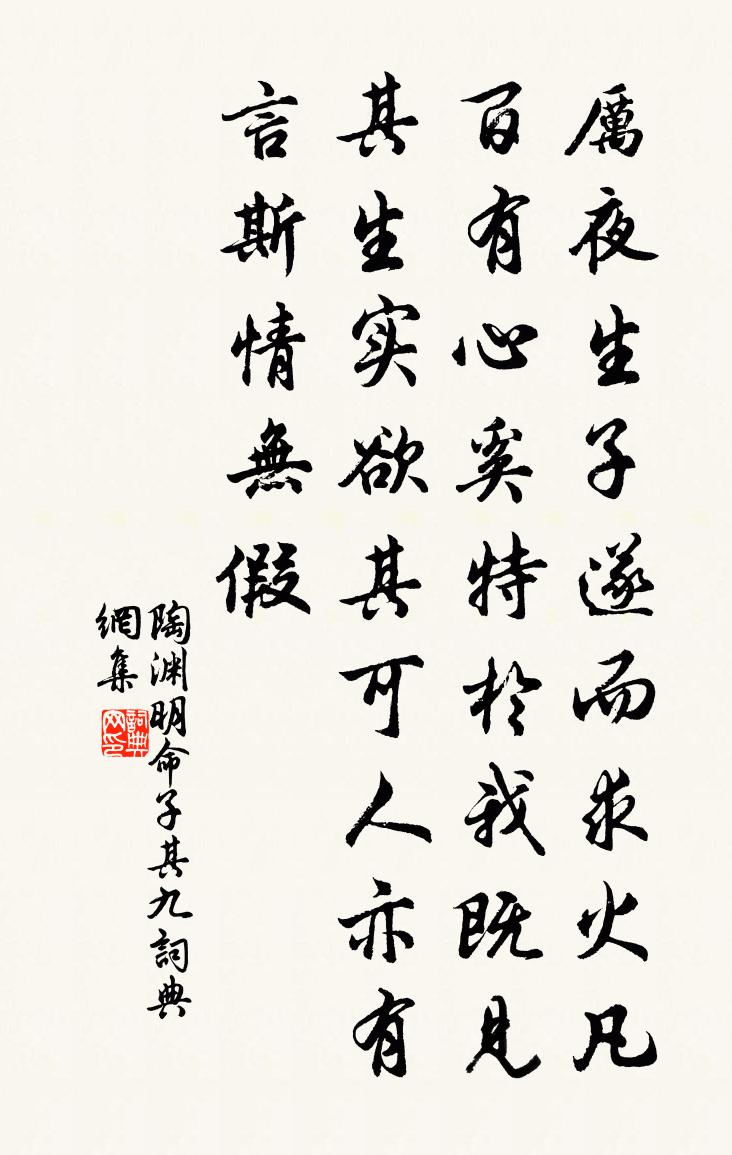 厲夜生子遂而求火凡
百有心奚特於我既見
其生实欲其可人亦有
言斯情無假
陶渊明命子其九詞典
網集
詞典网印